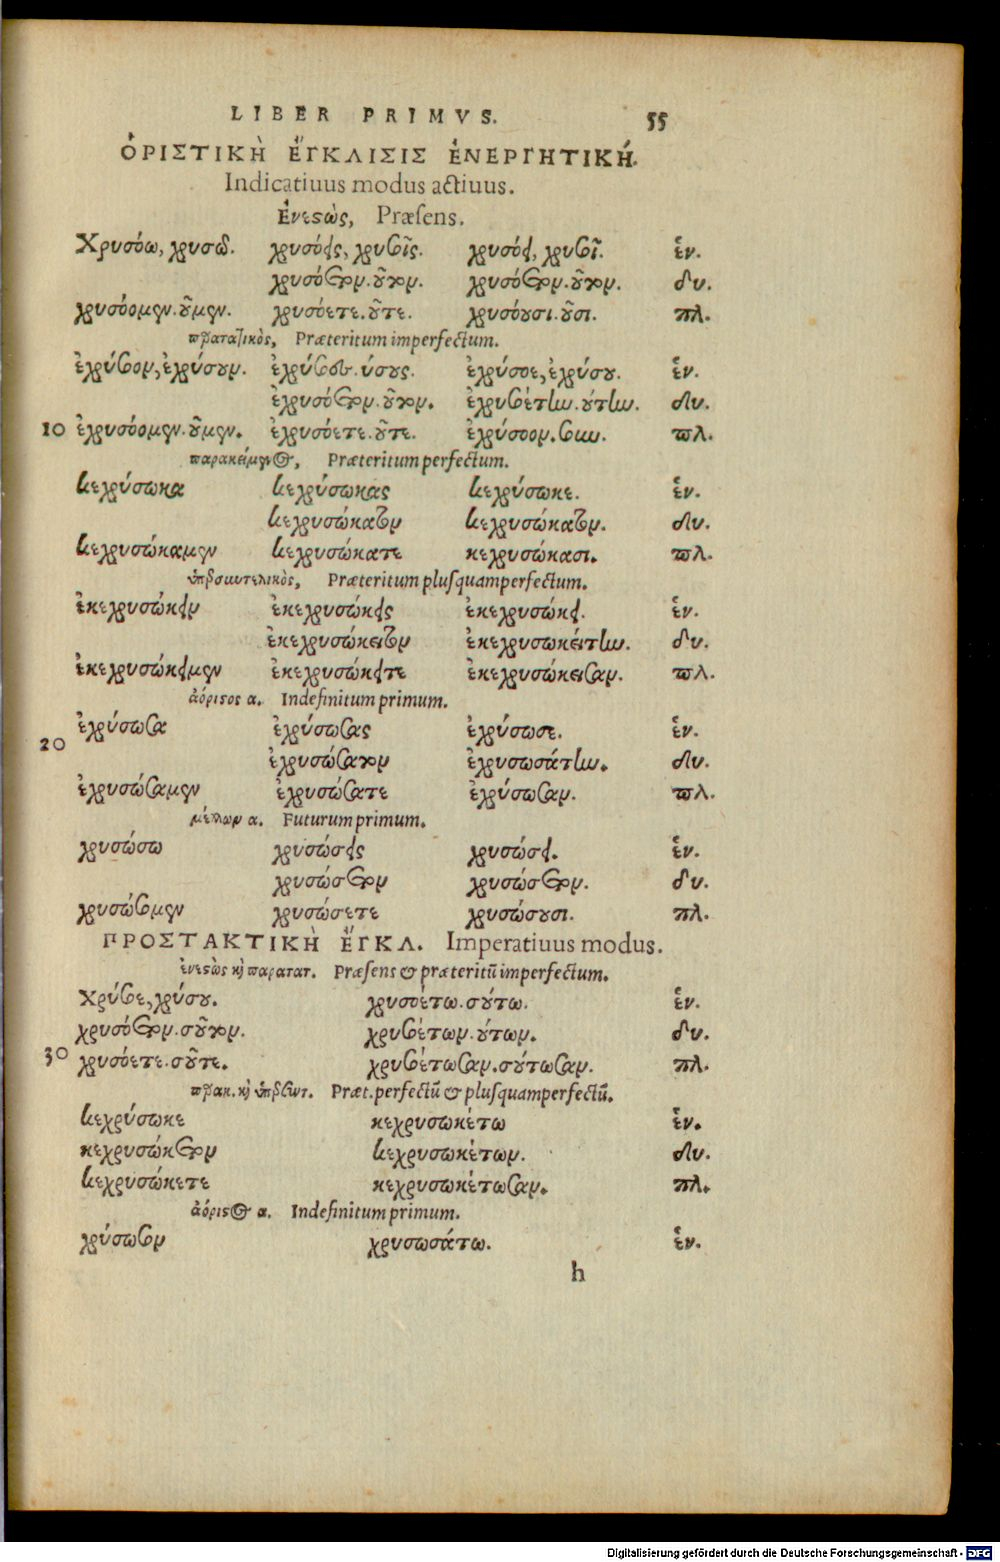 LIBER PRIMVS. 55
ὉΡΙΣΤΙΚῊ ἜΓΚΛΙΣΙΣ ἘΝΕΡΓΗΤΙΚΉ.
Indicatiuus modus actiuus.
Ἐνεϛὼς, Præſens.
Χρυσόω, χρυσῶ. χρυσόεις, χρυσοῖς. χρυσόει, χρυσοῖ. ἑν.
χρυσόετον. οῦτον. χρυσόετον. οῦτον. δυ.
χρυσόομεν. οῦμεν. χρυσόετε. οῦτε. χρυσόουσι. οῦσι. πλ.
παρατατικὸς, Præteritum imperfectum.
ἐχρύσοον, ἐχρύσουν. ἐχρύσοες. ύσους. ἐχρύσοε, ἐχρύσου. ἑν.
ἐχρυσόετον. οῦτον. ἐχρυσοέτην. ούτην. δυ.
10 ἐχρυσόομεν. οῦμεν. ἐχρυσόετε. οῦτε. ἐχρύσοον. σουν. πλ.
παρακείμενος, Præteritum perfectum.
κεχρύσωκα κεχρύσωκας κεχρύσωκε. ἑν.
κεχρυσώκατον κεχρυσώκατον. δυ.
κεχρυσώκαμεν κεχρυσώκατε κεχρυσώκασι. πλ.
ὑπερσυντελικὸς, Præteritum pluſquamperfectum.
ἐκεχρυσώκειν ἐκεχρυσώκεις ἐκεχρυσώκει. ἑν.
ἐκεχρυσώκειτον ἐκεχρυσωκείτην. δυ.
ἐκεχρυσώκειμεν ἐκεχρυσώκειτε ἐκεχρυσώκεισαν. πλ.
ἀόριϛος α. Indefinitum primum.
ἐχρύσωσα ἐχρύσωσας ἐχρύσωσε. ἑν.
20 ἐχρυσώσατον ἐχρυσωσάτην. δυ.
ἐχρυσώσαμεν ἐχρυσώσατε ἐχρύσωσαν. πλ.
μέλλων α. Futurum primum.
χρυσώσω χρυσώσεις χρυσώσει. ἑν.
χρυσώσετον χρυσώσετον. δυ.
χρυσώσομεν χρυσώσετε χρυσώσουσι. πλ.
ΠΡΟΣΤΑΚΤΙΚῊ ἜΓΚΛ. Imperatiuus modus.
ἐνεϛὼς καὶ παρατατ. Præſens & præteritũ imperfectum.
Χρύσοε, χρύσου. χρυσοέτω. σούτω. ἑν.
χρυσόετον. σοῦτον. χρυσοέτων. ούτων. δυ.
30 χρυσόετε. σοῦτε. χρυσοέτωσαν. σούτωσαν. πλ.
παρακ. καὶ ὑπερσυντ. Præt. perfectũ & pluſquamperfectũ.
κεχρύσωκε κεχρυσωκέτω ἑν.
κεχρυσώκετον κεχρυσωκέτων. δυ.
κεχρυσώκετε κεχρυσωκέτωσαν. πλ.
ἀόριϛος α. Indefinitum primum.
χρύσωσον χρυσωσάτω. ἑν.
h
Digitalisierung gefördert durch die Deutsche Forschungsgemeinschaft - DFG